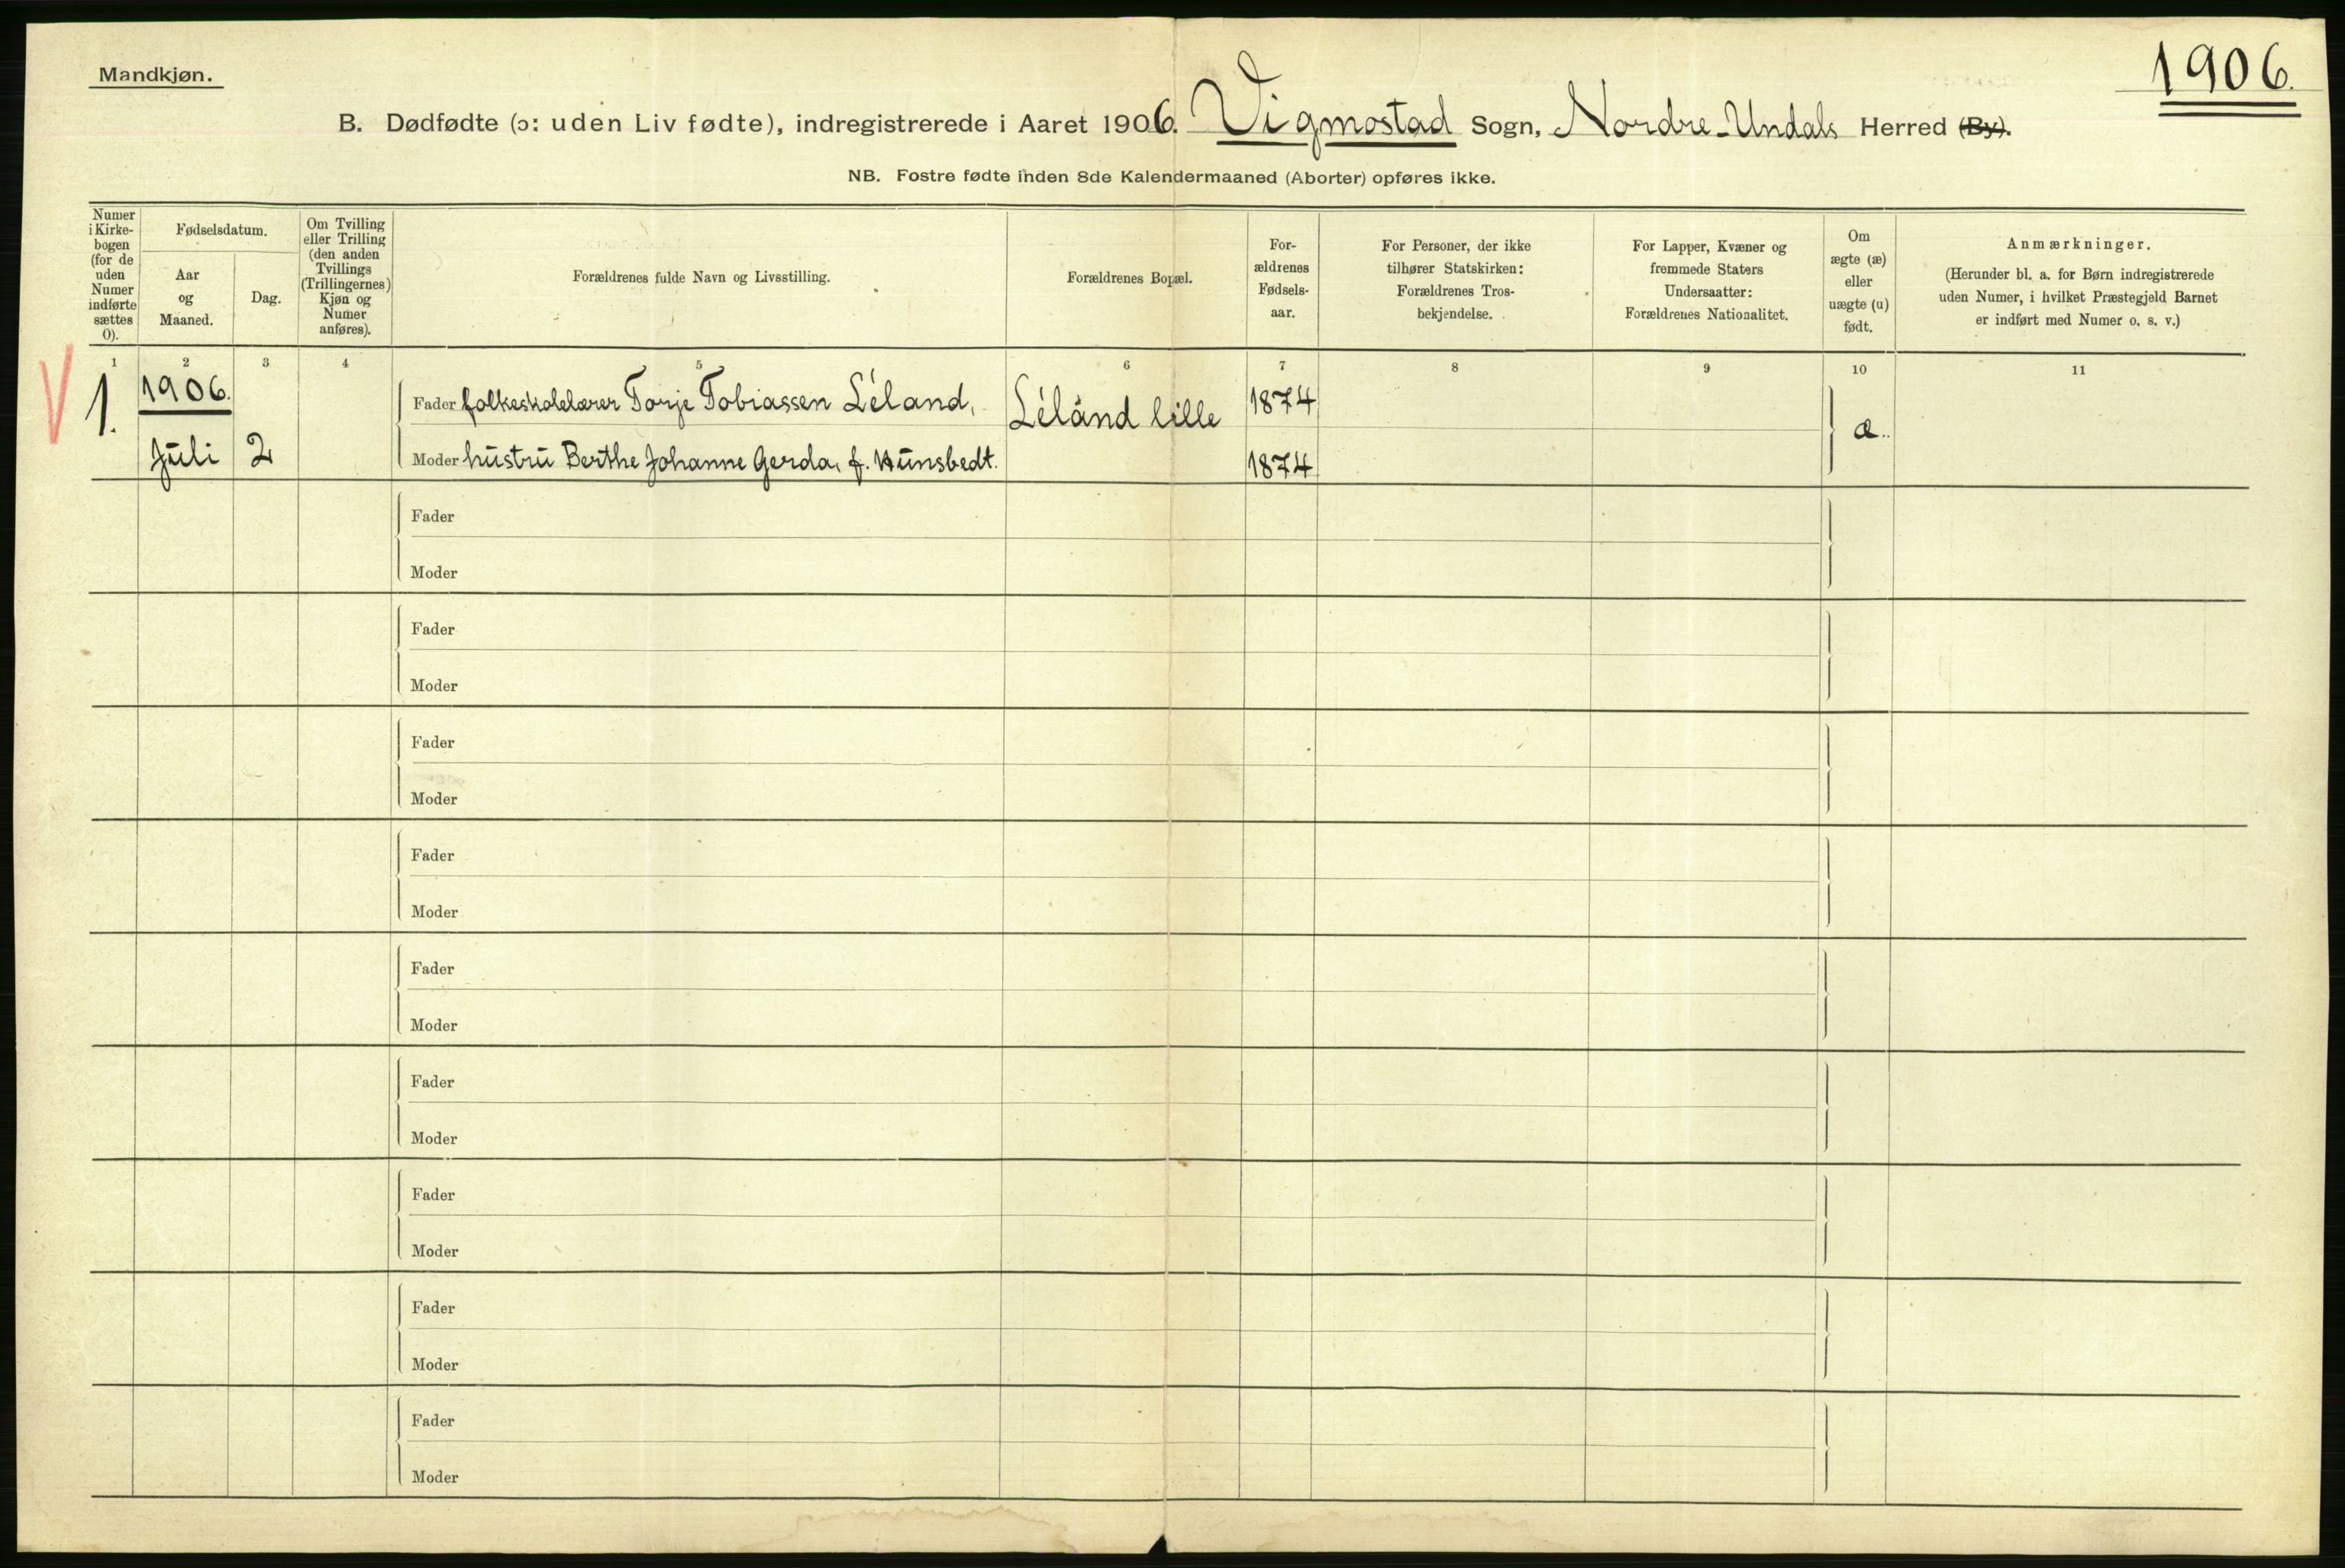 Mandkjøn.
1906.
B. Dødfødte (ɔ: uden Liv fødte), indregistrerede i Aaret 1906. Vigmostad Sogn, Nordre-Undals Herred (By).
NB. Fostre fødte inden 8de Kalendermaaned (Aborter) opføres ikke.
Numer
i Kirke-
bogen
(for de
uden
Numer
indførte
sættes
0).
Fødselsdatum.
Aar
og
Maaned.
Dag.
Om Tvilling
eller Trilling
(den anden
Tvillings
(Trillingernes)
Kjøn og
Numer
anføres).
Forældrenes fulde Navn og Livsstilling.
Forældrenes Bopæl.
For-
ældrenes
Fødsels-
aar.
For Personer, der ikke
tilhører Statskirken:
Forældrenes Tros-
bekjendelse.
For Lapper, Kvæner og
fremmede Staters
Undersaatter:
Forældrenes Nationalitet.
Om
ægte (æ)
eller
uægte (u)
født.
Anmærkninger.
(Herunder bl. a. for Børn indregistrerede
uden Numer, i hvilket Præstegjeld Barnet
er indført med Numer o. s. v.)
1 2 3 4 5 6 7 8 9 10 11
1. 1906. Fader folkeskolelærer Torje Tobiassen Léland, Léland lille 1874 æ.
Juli 2 Moder hustru Berthe Johanne Gerda, f. Hunsbedt. 1874
Fader
Moder
Fader
Moder
Fader
Moder
Fader
Moder
Fader
Moder
Fader
Moder
Fader
Moder
Fader
Moder
Fader
Moder